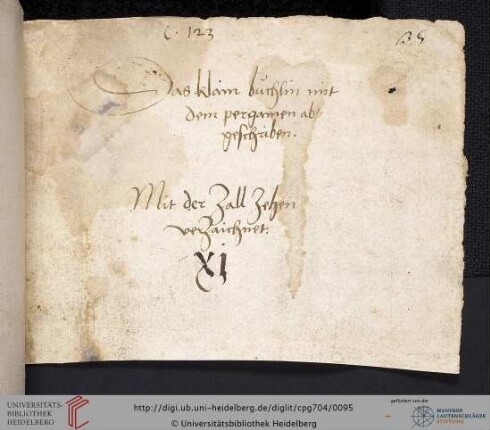 C. 123
35
Das klain büchlin mit
dem pergamen ab/
geschriben.
Mit der Zall Zehen
verzaichnet.
XI
UNIVERSITÄTS-
BIBLIOTHEK
HEIDELBERG
http://digi.ub.uni-heidelberg.de/diglit/cpg704/0095
© Universitätsbibliothek Heidelberg
gefördert von der
MANFRED
LAUTENSCHLÄGER
STIFTUNG